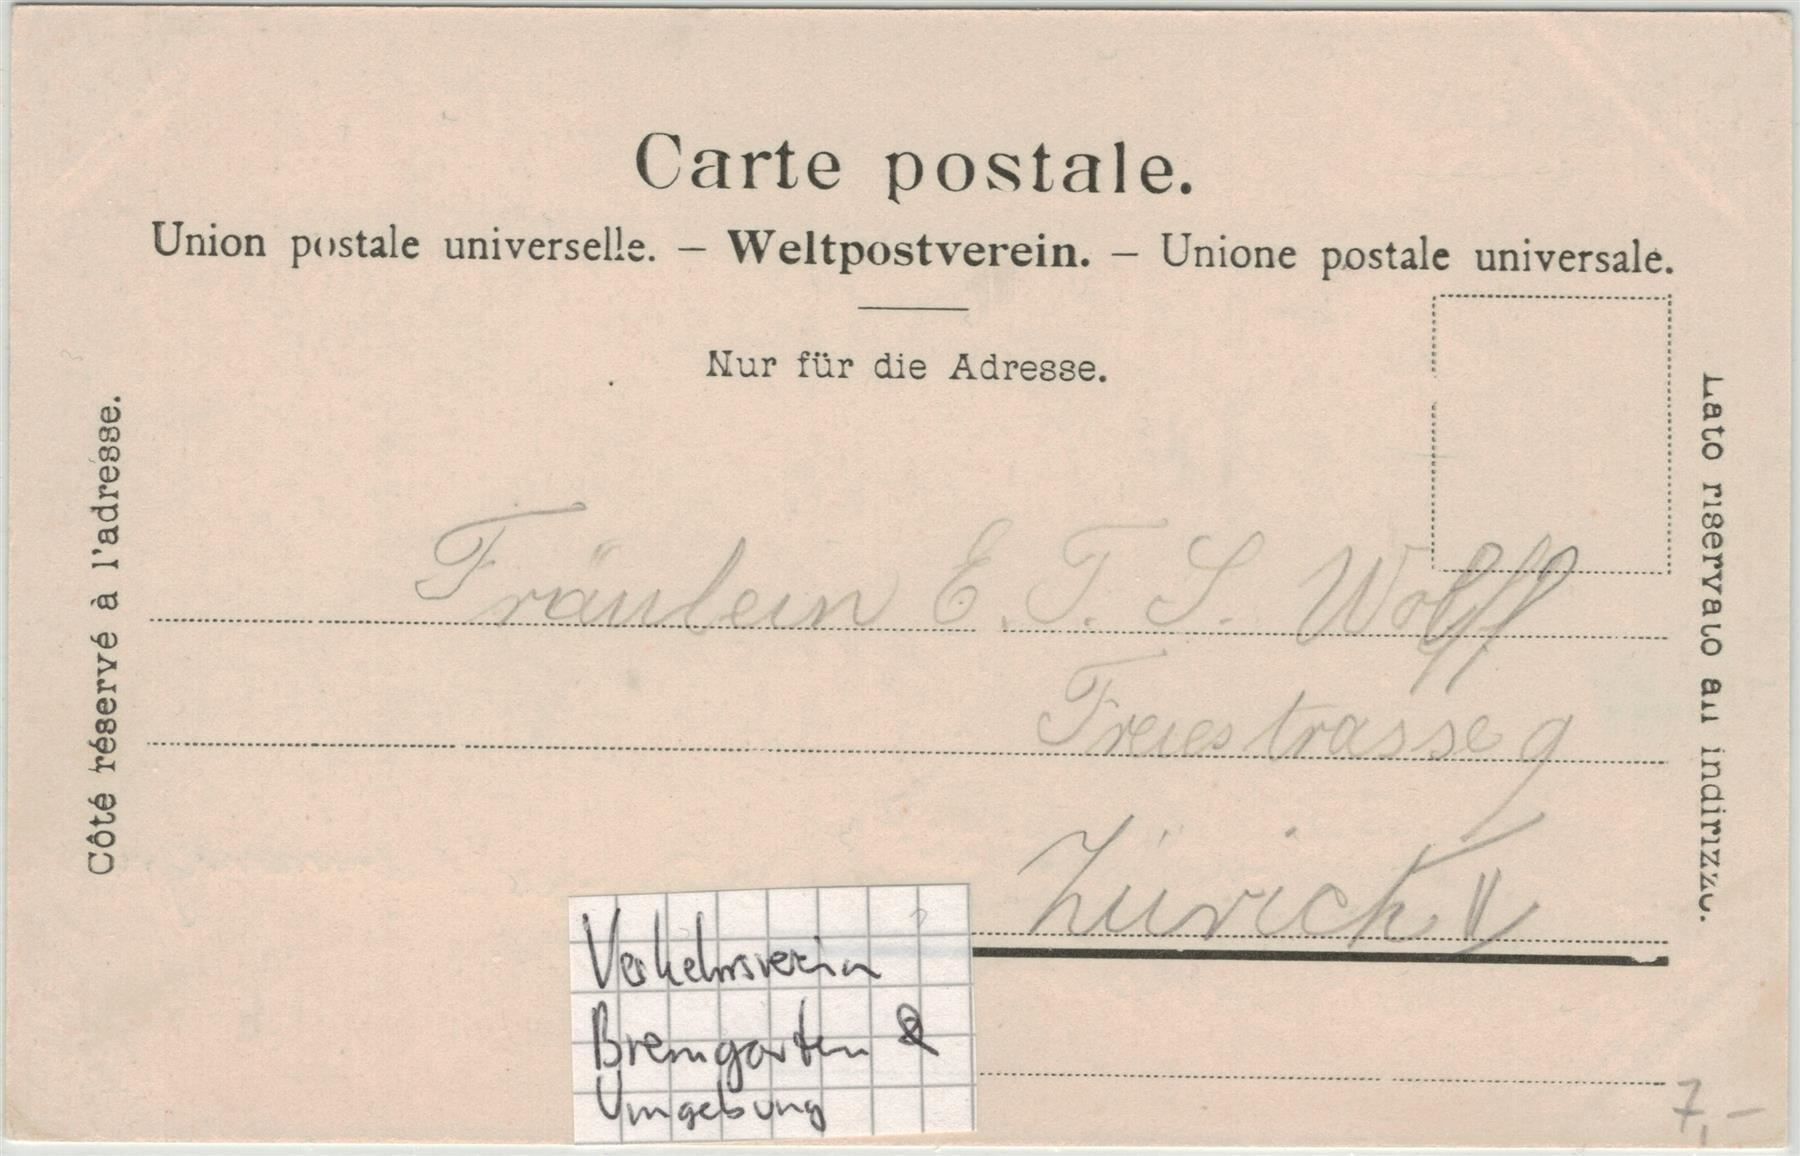 Carte postale.
Union postale universelle. — Weltpostverein. — Unione postale universale.
Nur für die Adresse.
Côté réservé à l'adresse.
Lato riservato all indirizzo.
Fräulein E. T. S. Wolff
Freiestrasse 9
Zürich V
Verkehrsverein
Bremgarten &
Umgebung
7,-